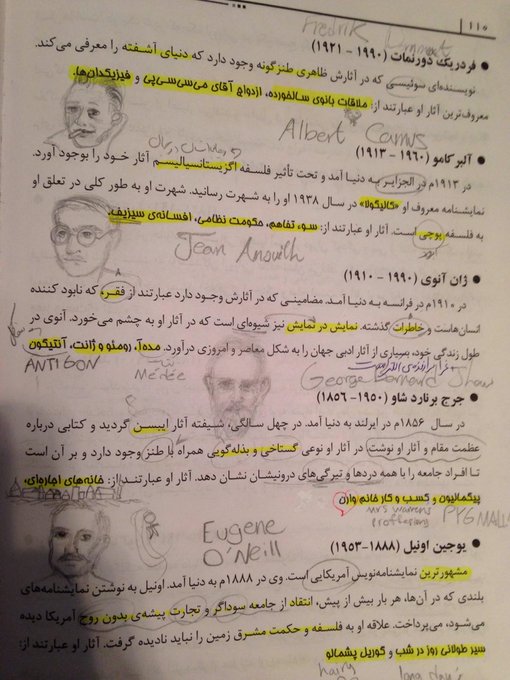 ۱۱۰
Fredrik
● فردریک دورنمات (۱۹۹۰ - ۱۹۲۱)
نویسنده‌ای سوئیسی که در آثارش ظاهری طنزگونه وجود دارد که دنیای آشفته را معرفی می‌کند.
معروف‌ترین آثار او عبارتند از: ملاقات بانوی سالخورده، ازدواج آقای می‌سی‌سی‌پی و فیزیکدان‌ها.
Albert Camus
● آلبر کامو (۱۹۶۰ - ۱۹۱۳)
در ۱۹۱۳م در الجزایر به دنیا آمد و تحت تأثیر فلسفه اگزیستانسیالیسم آثار خود را بوجود آورد.
نمایشنامه معروف او «کالیگولا» در سال ۱۹۳۸ او را به شهرت رسانید. شهرت او به طور کلی در تعلق او
به فلسفه پوچی است. آثار او عبارتند از: سوء تفاهم، حکومت نظامی، افسانه‌ی سیزیف.
Jean Anouilh
● ژان آنوی (۱۹۹۰ - ۱۹۱۰)
در ۱۹۱۰م در فرانسه به دنیا آمد. مضامینی که در آثارش وجود دارد عبارتند از فقر، که نابود کننده
انسان‌هاست و خاطرات گذشته. نمایش در نمایش نیز شیوه‌ای است که در آثار او به چشم می‌خورد. آنوی در
طول زندگی خود، بسیاری از آثار ادبی جهان را به شکل معاصر و امروزی درآورد. مده‌آ، رومئو و ژانت، آنتیگون
ANTIGON
Médée
George Bernard Shaw
● جرج برنارد شاو (۱۹۵۰ - ۱۸۵۶)
در سال ۱۸۵۶م در ایرلند به دنیا آمد. در چهل سالگی، شیفته آثار ایبسن گردید و کتابی درباره
عظمت مقام و آثار او نوشت. در آثار او نوعی گستاخی و بذله‌گویی همراه با طنز وجود دارد و بر آن است
تا افراد جامعه را با همه دردها و تیرگی‌های درونیشان نشان دهد. آثار او عبارتند از: خانه‌های اجاره‌ای،
پیگمالیون و کسب و کار خانم وارن
PYGMALI
Mrs warrens
proffesions
OK
Eugene
O'Neill
● یوجین اونیل (۱۹۵۳-۱۸۸۸)
مشهورترین نمایشنامه‌نویس آمریکایی است. وی در ۱۸۸۸م به دنیا آمد. اونیل به نوشتن نمایشنامه‌های
بلندی که در آن‌ها، هر بار بیش از پیش، انتقاد از جامعه سوداگر و تجارت پیشه‌ی بدون روح آمریکا دیده
می‌شود، می‌پرداخت. علاقه او به فلسفه و حکمت مشرق زمین را نباید نادیده گرفت. آثار او عبارتند از:
سیر طولانی روز در شب و گوریل پشمالو
hairy
long day's